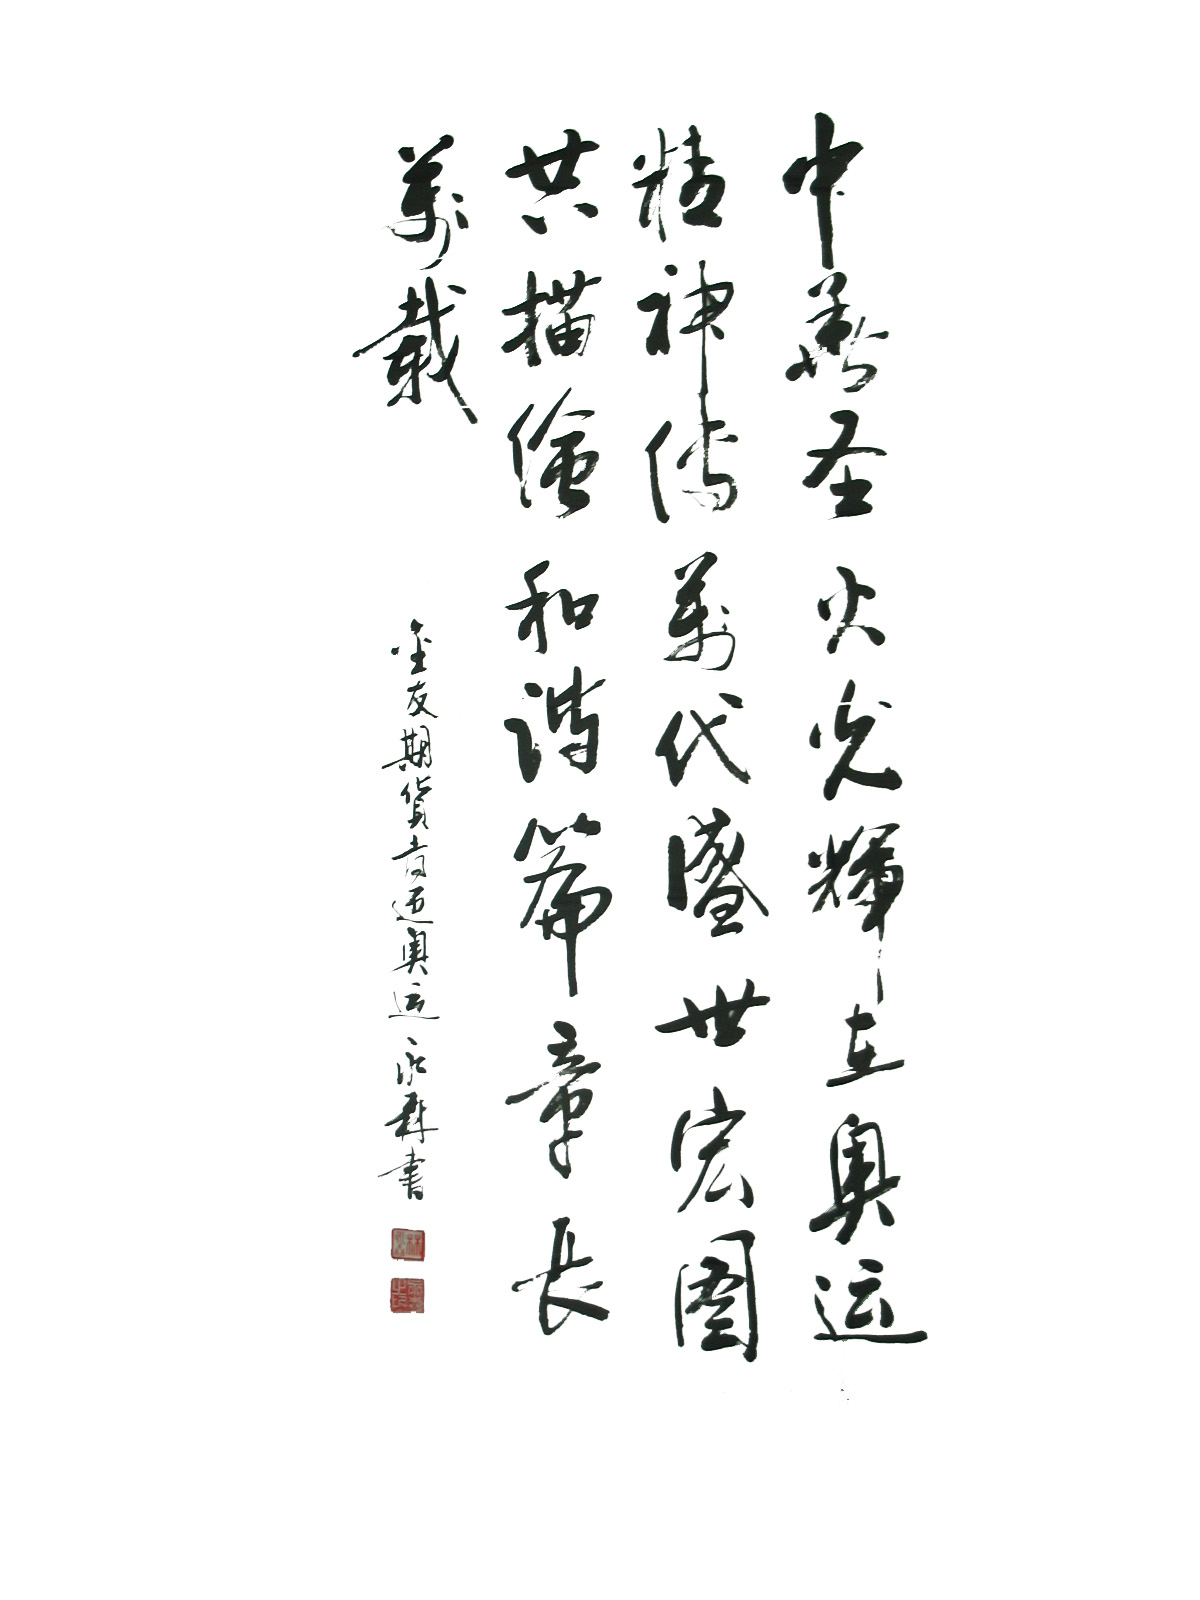 中華圣火光輝在奥运
精神传萬代盛世宏图
共描绘和谐篇章长
萬載
金友期貨喜迎奥运 永 书